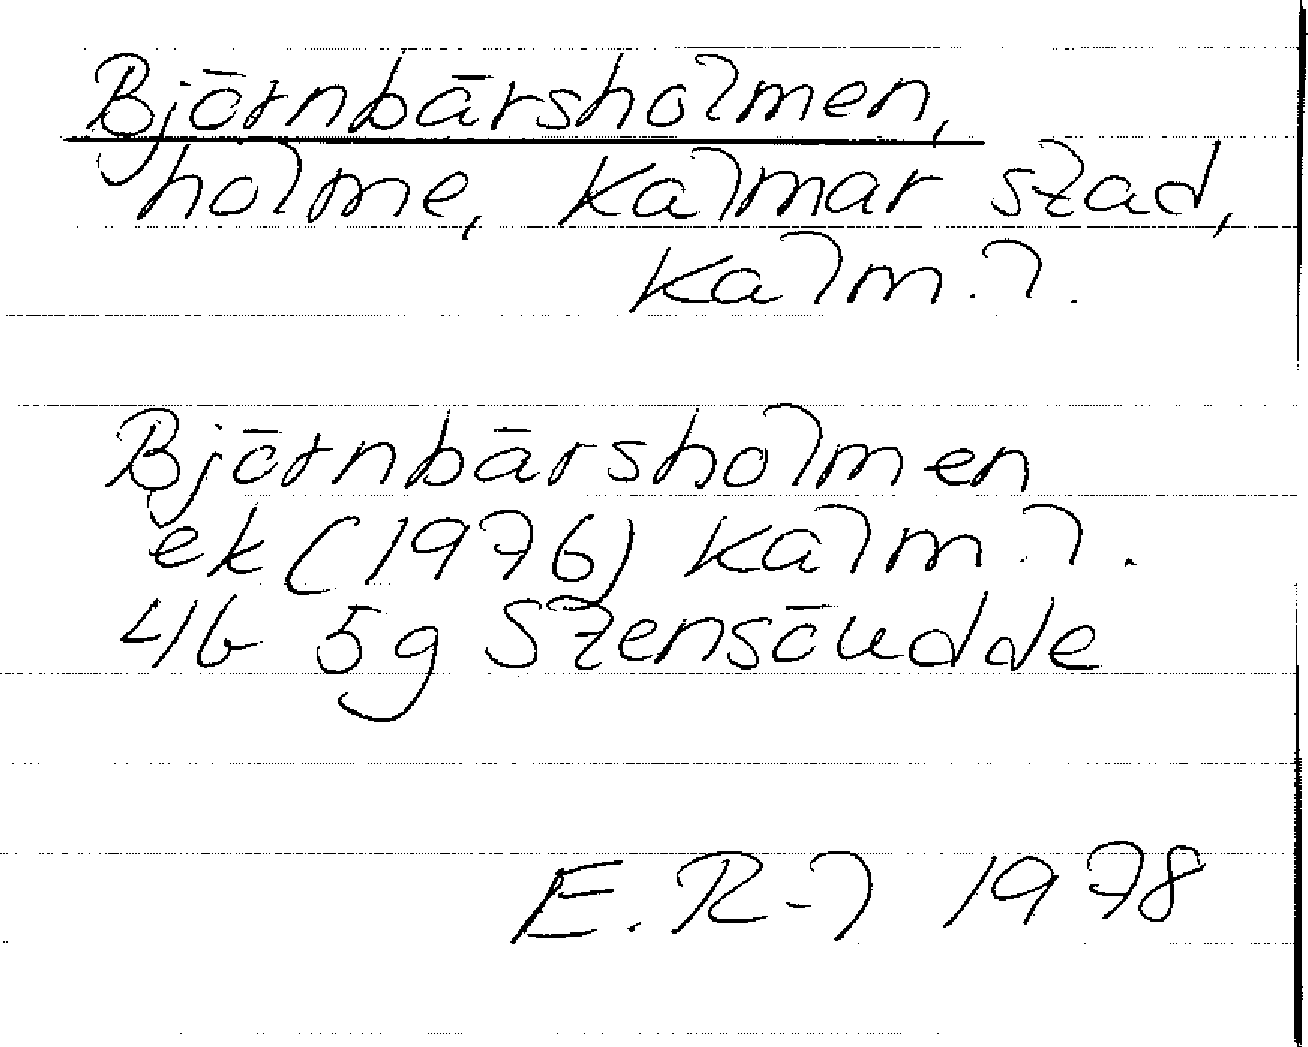 Björnbärsholmen,
holme, Kalmar stad,
Kalm. l.
Björnbärsholmen
ek (1976) Kalm. l.
4G 5g Stensöudde
E. R-l 1978